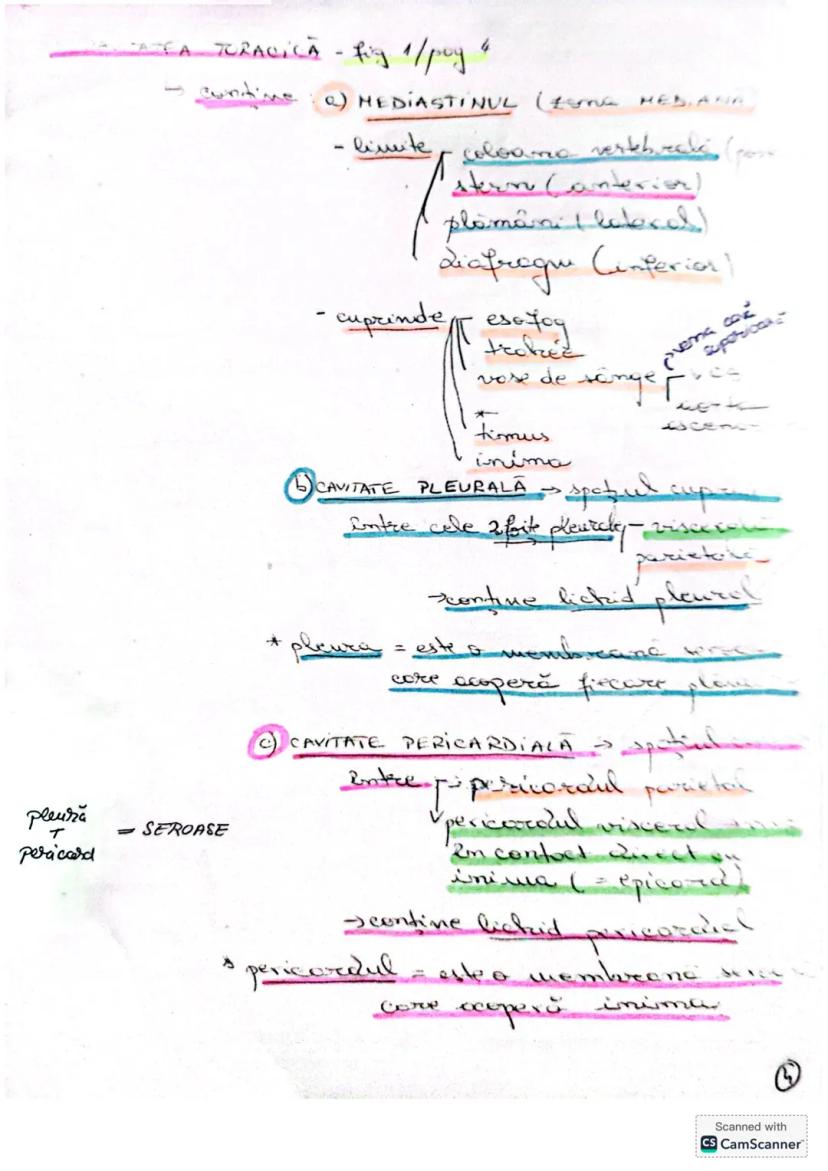 TORACICĂ - fig 1/pag 4
→ conține a) MEDIASTINUL (zona MEDIANĂ
- limite coloana vertebrală
stern (anterior)
plămâni (lateral)
diafragm (inferior)
- cuprinde esofag
trahee
vena cavă superioară
vase de sânge
*
timus
inima
b) CAVITATE PLEURALĂ → spațiul
între cele 2 foite pleurale viscerală
parietală
→ conține lichid pleural
* pleura = este o membrană
care acoperă fiecare
c) CAVITATE PERICARDIALĂ → spațiul
între → pericardul parietal
pericardul visceral
în contact direct cu
inima (= epicard)
pleură + pericard = SEROASE
→ conține lichid pericardial
* pericardul = este o membrană
care acoperă inima
4
Scanned with
CS CamScanner